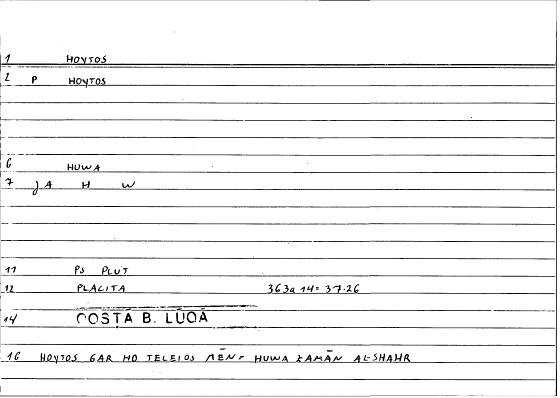 1 HOYTOS
2 P HOYTOS
6 HUWA
7 J A H W
11 PS PLUT
12 PLACITA 363a 14= 37.26
14 COSTA B. LUQA
16 HOYTOS GAR HO TELEIOS MĒN= HUWA ZAMĀN AL-SHAHR